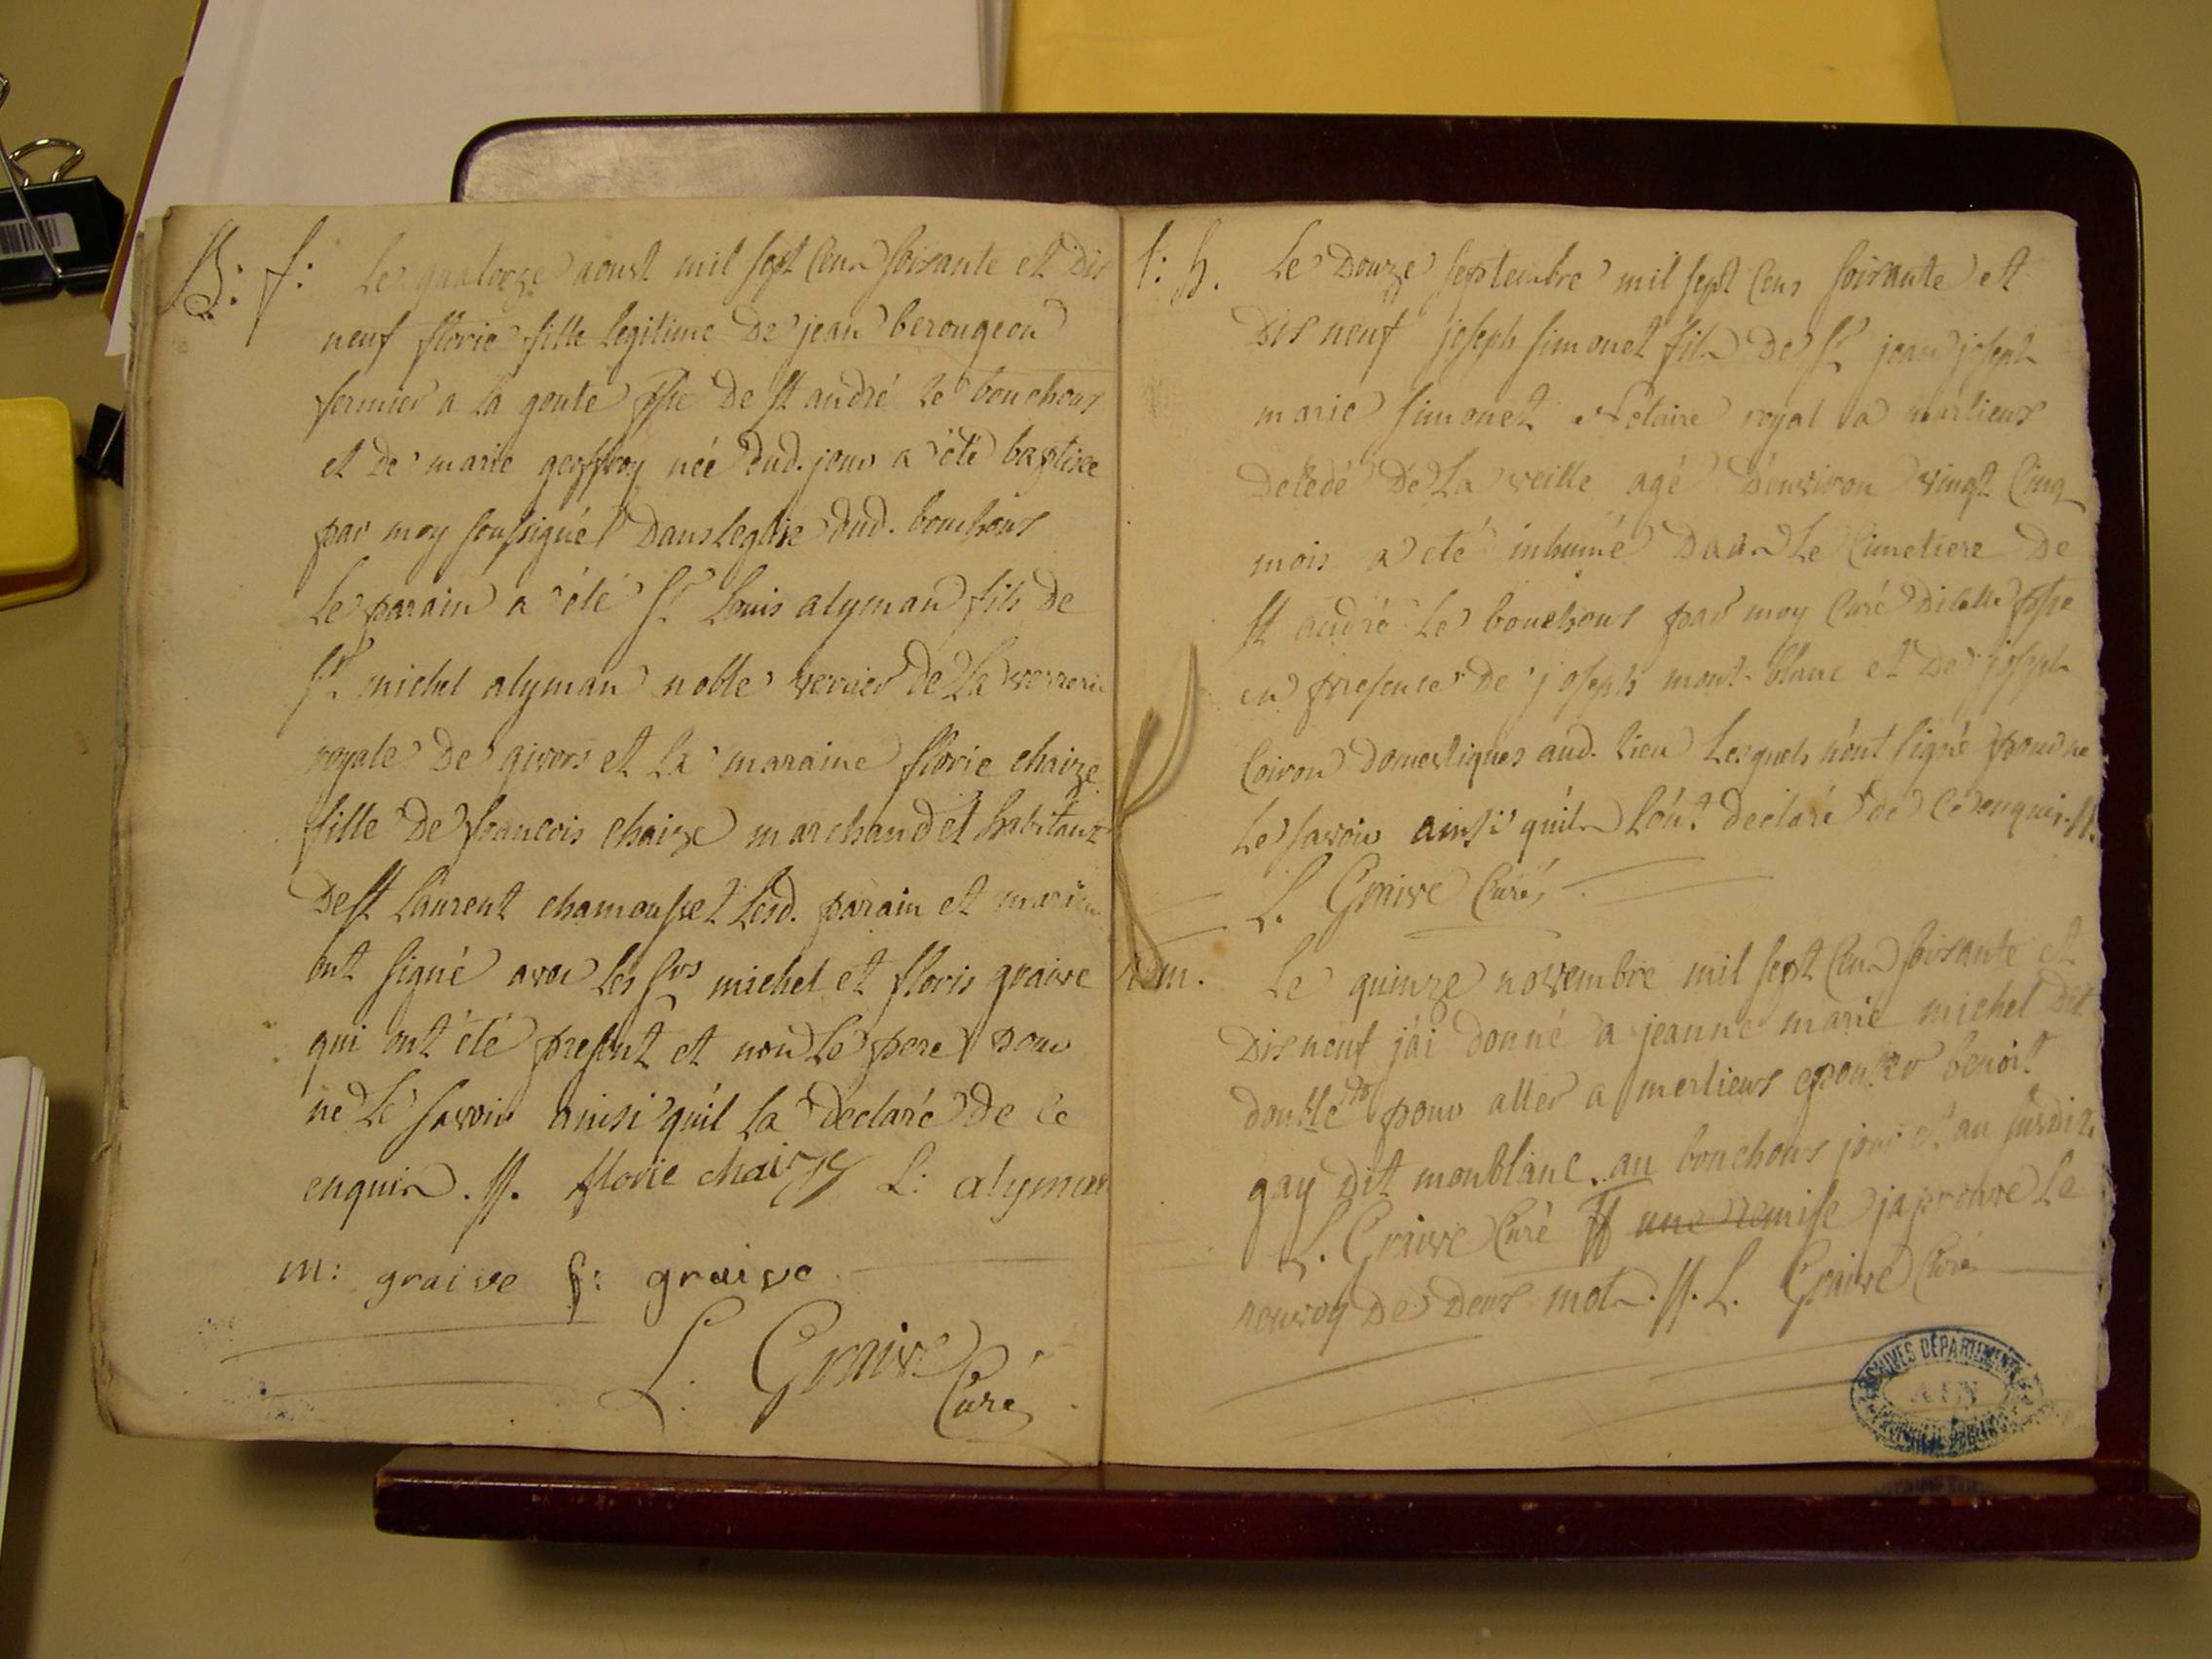 B: f: Le quatorze aoust mil sept Cens soixante et Dix
neuf florie fille legitime De jean berougeon
fermier a la goute psse De St andré le bouchous
et De marie geoffroy née dud. jour a été baptisée
par moy soussigné Dans leglise dud. bouchous
Le parain a été Sr Louis alyman fils de
Sr michel alyman noble verrier de La verrerie
royale De givors et La maraine florie chaize
fille De francois chaize marchand et habitant
De St Laurent chamousset Lesd. parain et maraine
ont signé avec les Srs michel et floris graive
qui ont été present et non Le pere pour
ne Le savoir ainsi qu'il la declaré De ce
enquis. ff. florie chaize L: alyman
m: graive f: graive
L. Graive
Curé
t: h. Le Douze septembre mil sept Cens soixante et
Dix neuf joseph simonet fils De Sr jean joseph
marie simonet Notaire royal a marlieux
decedé De La veille agé D'environ vingt Cinq
mois a eté inhumé Dans Le Cimetiere De
St andré Le bouchous par moy Curé Dicelle psse
en presence De joseph mont-blanc et De joseph
Coiron Domestiques aud. lieu Lesquels n'ont signé pour ne
Le savoir ainsi qu'ils l'ont declaré de Ce enquis. ff.
L. Graive Curé
r: m. Le quinze novembre mil sept Cens soixante et
Dix neuf j'ai donné a jeanne marie michel Dit
double pour aller a merlieux epouser benoit
gay dit monblanc au bouchous jour et an susdits
L. Graive Curé ff une remise japrouve Le
renvoy De Deux mots. ff. L. Graive Curé
ARCHIVES DÉPARTEMENTALES
AIN